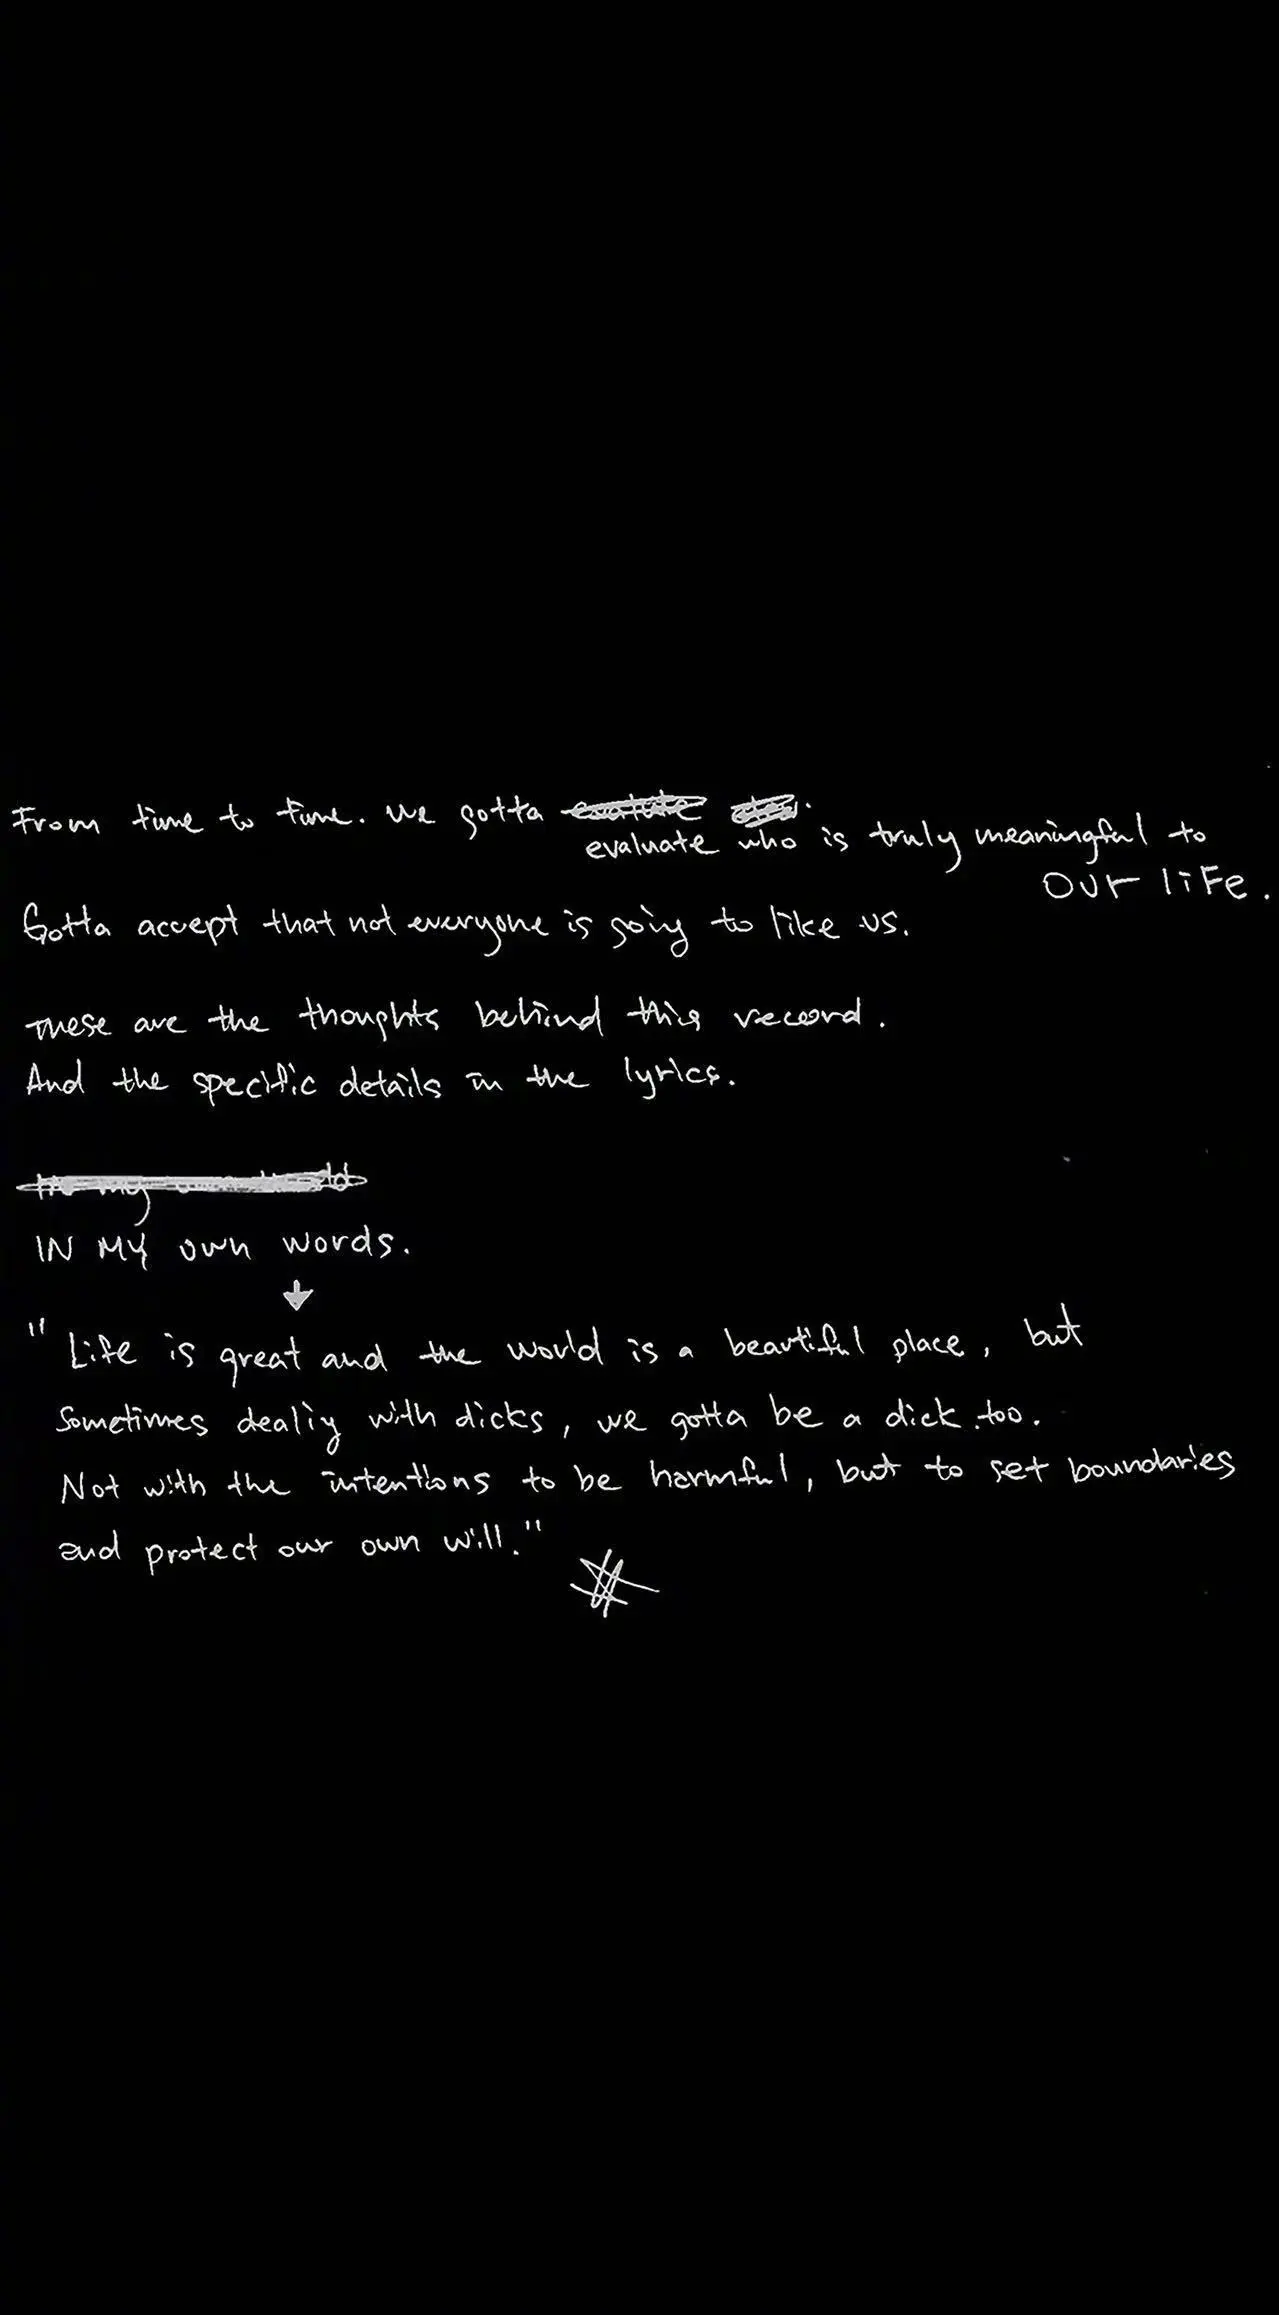 From time to time. we gotta
evaluate who is truly meaningful to
our life.
Gotta accept that not everyone is going to like us.
These are the thoughts behind this record.
And the specific details in the lyrics.
IN MY own words.
"Life is great and the world is a beautiful place, but
sometimes dealiy with dicks, we gotta be a dick too.
Not with the intentions to be harmful, but to set boundaries
and protect our own will."